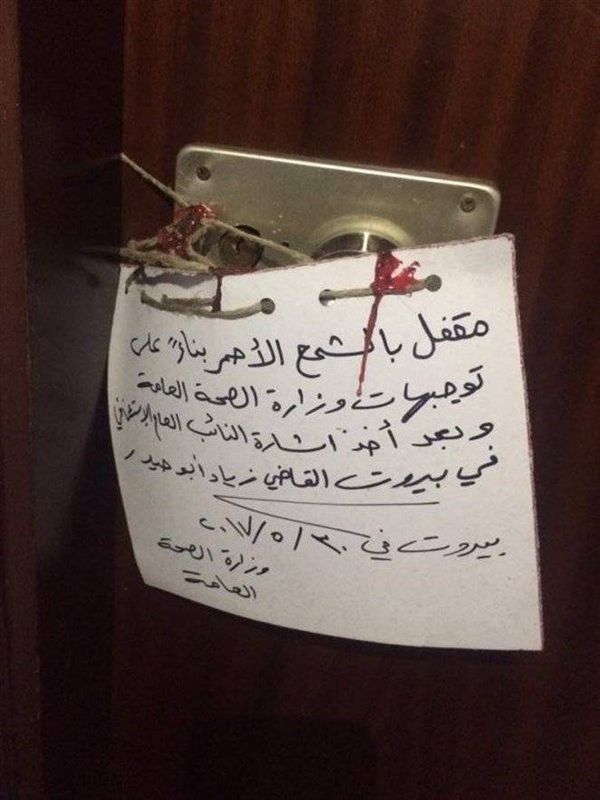 مقفل بالشمع الأحمر بناءً على
توجيهات وزارة الصحة العامة
وبعد أخذ اشارة النائب العام الإستئنافي
في بيروت القاضي زياد ابو حيدر
بيروت في ٣٠/٥/٢٠١٧
وزارة الصحة
العامة